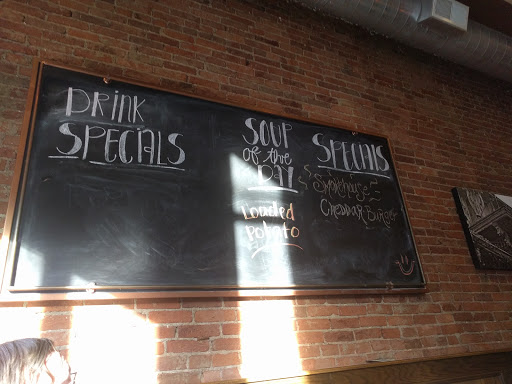 DRINK
SPECIALS
SOUP
of the
DAY
Loaded
Potato
SPECIALS
Smokehouse
Cheddar Burger